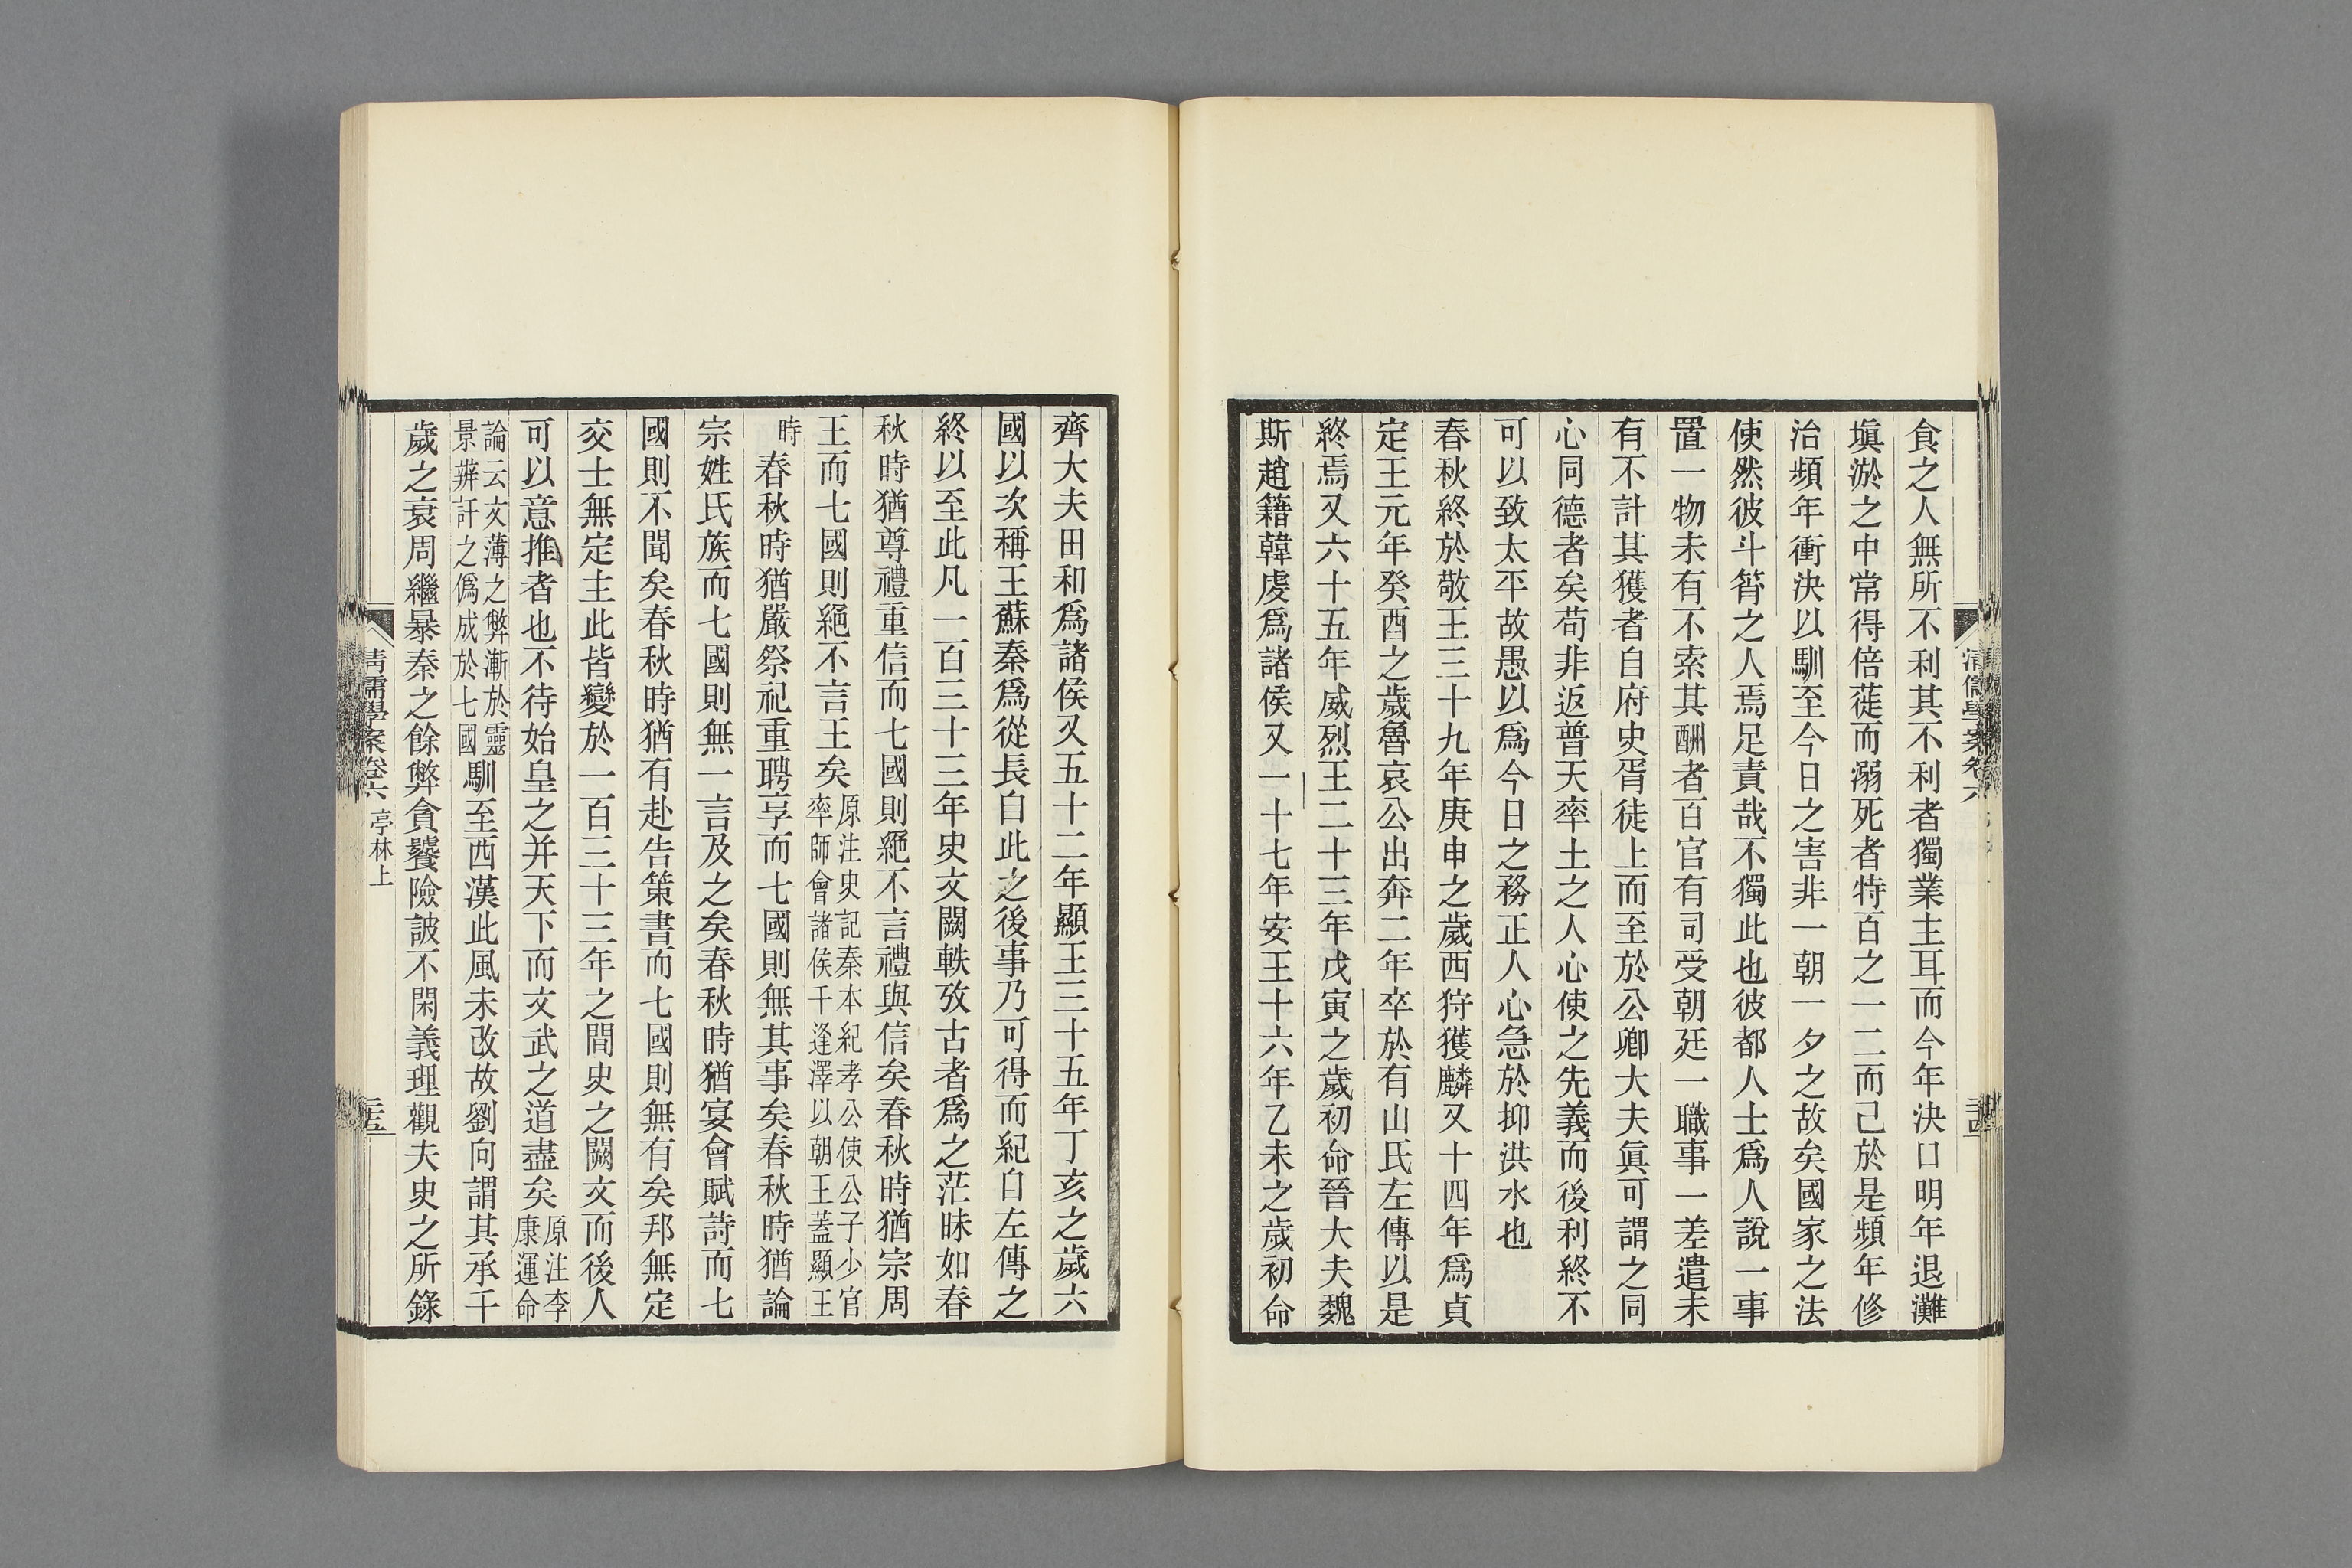 食之人無所不利其不利者獨業主耳而今年決口明年退灘
塡淤之中常得倍蓰而溺死者特百之一二而已於是頻年修
治頻年衝決以馴至今日之害非一朝一夕之故矣國家之法
使然彼斗筲之人焉足責哉不獨此也彼都人士爲人說一事
置一物未有不索其酬者百官有司受朝廷一職事一差遣未
有不計其獲者自府史胥徒上而至於公卿大夫眞可謂之同
心同德者矣苟非返普天率土之人心使之先義而後利終不
可以致太平故愚以爲今日之務正人心急於抑洪水也
春秋終於敬王三十九年庚申之歲西狩獲麟又十四年爲貞
定王元年癸酉之歲魯哀公出奔二年卒於有山氏左傳以是
終焉又六十五年威烈王二十三年戊寅之歲初命晉大夫魏
斯趙籍韓虔爲諸侯又一十七年安王十六年乙未之歲初命
齊大夫田和爲諸侯又五十二年顯王三十五年丁亥之歲六
國以次稱王蘇秦爲從長自此之後事乃可得而紀自左傳之
終以至此凡一百三十三年史文闕軼攷古者爲之茫昧如春
秋時猶尊禮重信而七國則絕不言禮與信矣春秋時猶宗周
王而七國則絕不言王矣原注史記秦本紀孝公使公子少官率師會諸侯于逢澤以朝王蓋顯王
時春秋時猶嚴祭祀重聘享而七國則無其事矣春秋時猶論
宗姓氏族而七國則無一言及之矣春秋時猶宴會賦詩而七
國則不聞矣春秋時猶有赴告策書而七國則無有矣邦無定
交士無定主此皆變於一百三十三年之間史之闕文而後人
可以意推者也不待始皇之并天下而文武之道盡矣原注李康運命
論云文薄之弊漸於靈景辨訐之僞成於七國馴至西漢此風未改故劉向謂其承千
歲之衰周繼暴秦之餘弊貪饕險詖不閑義理觀夫史之所錄
清儒學案卷六 亭林上 三十五